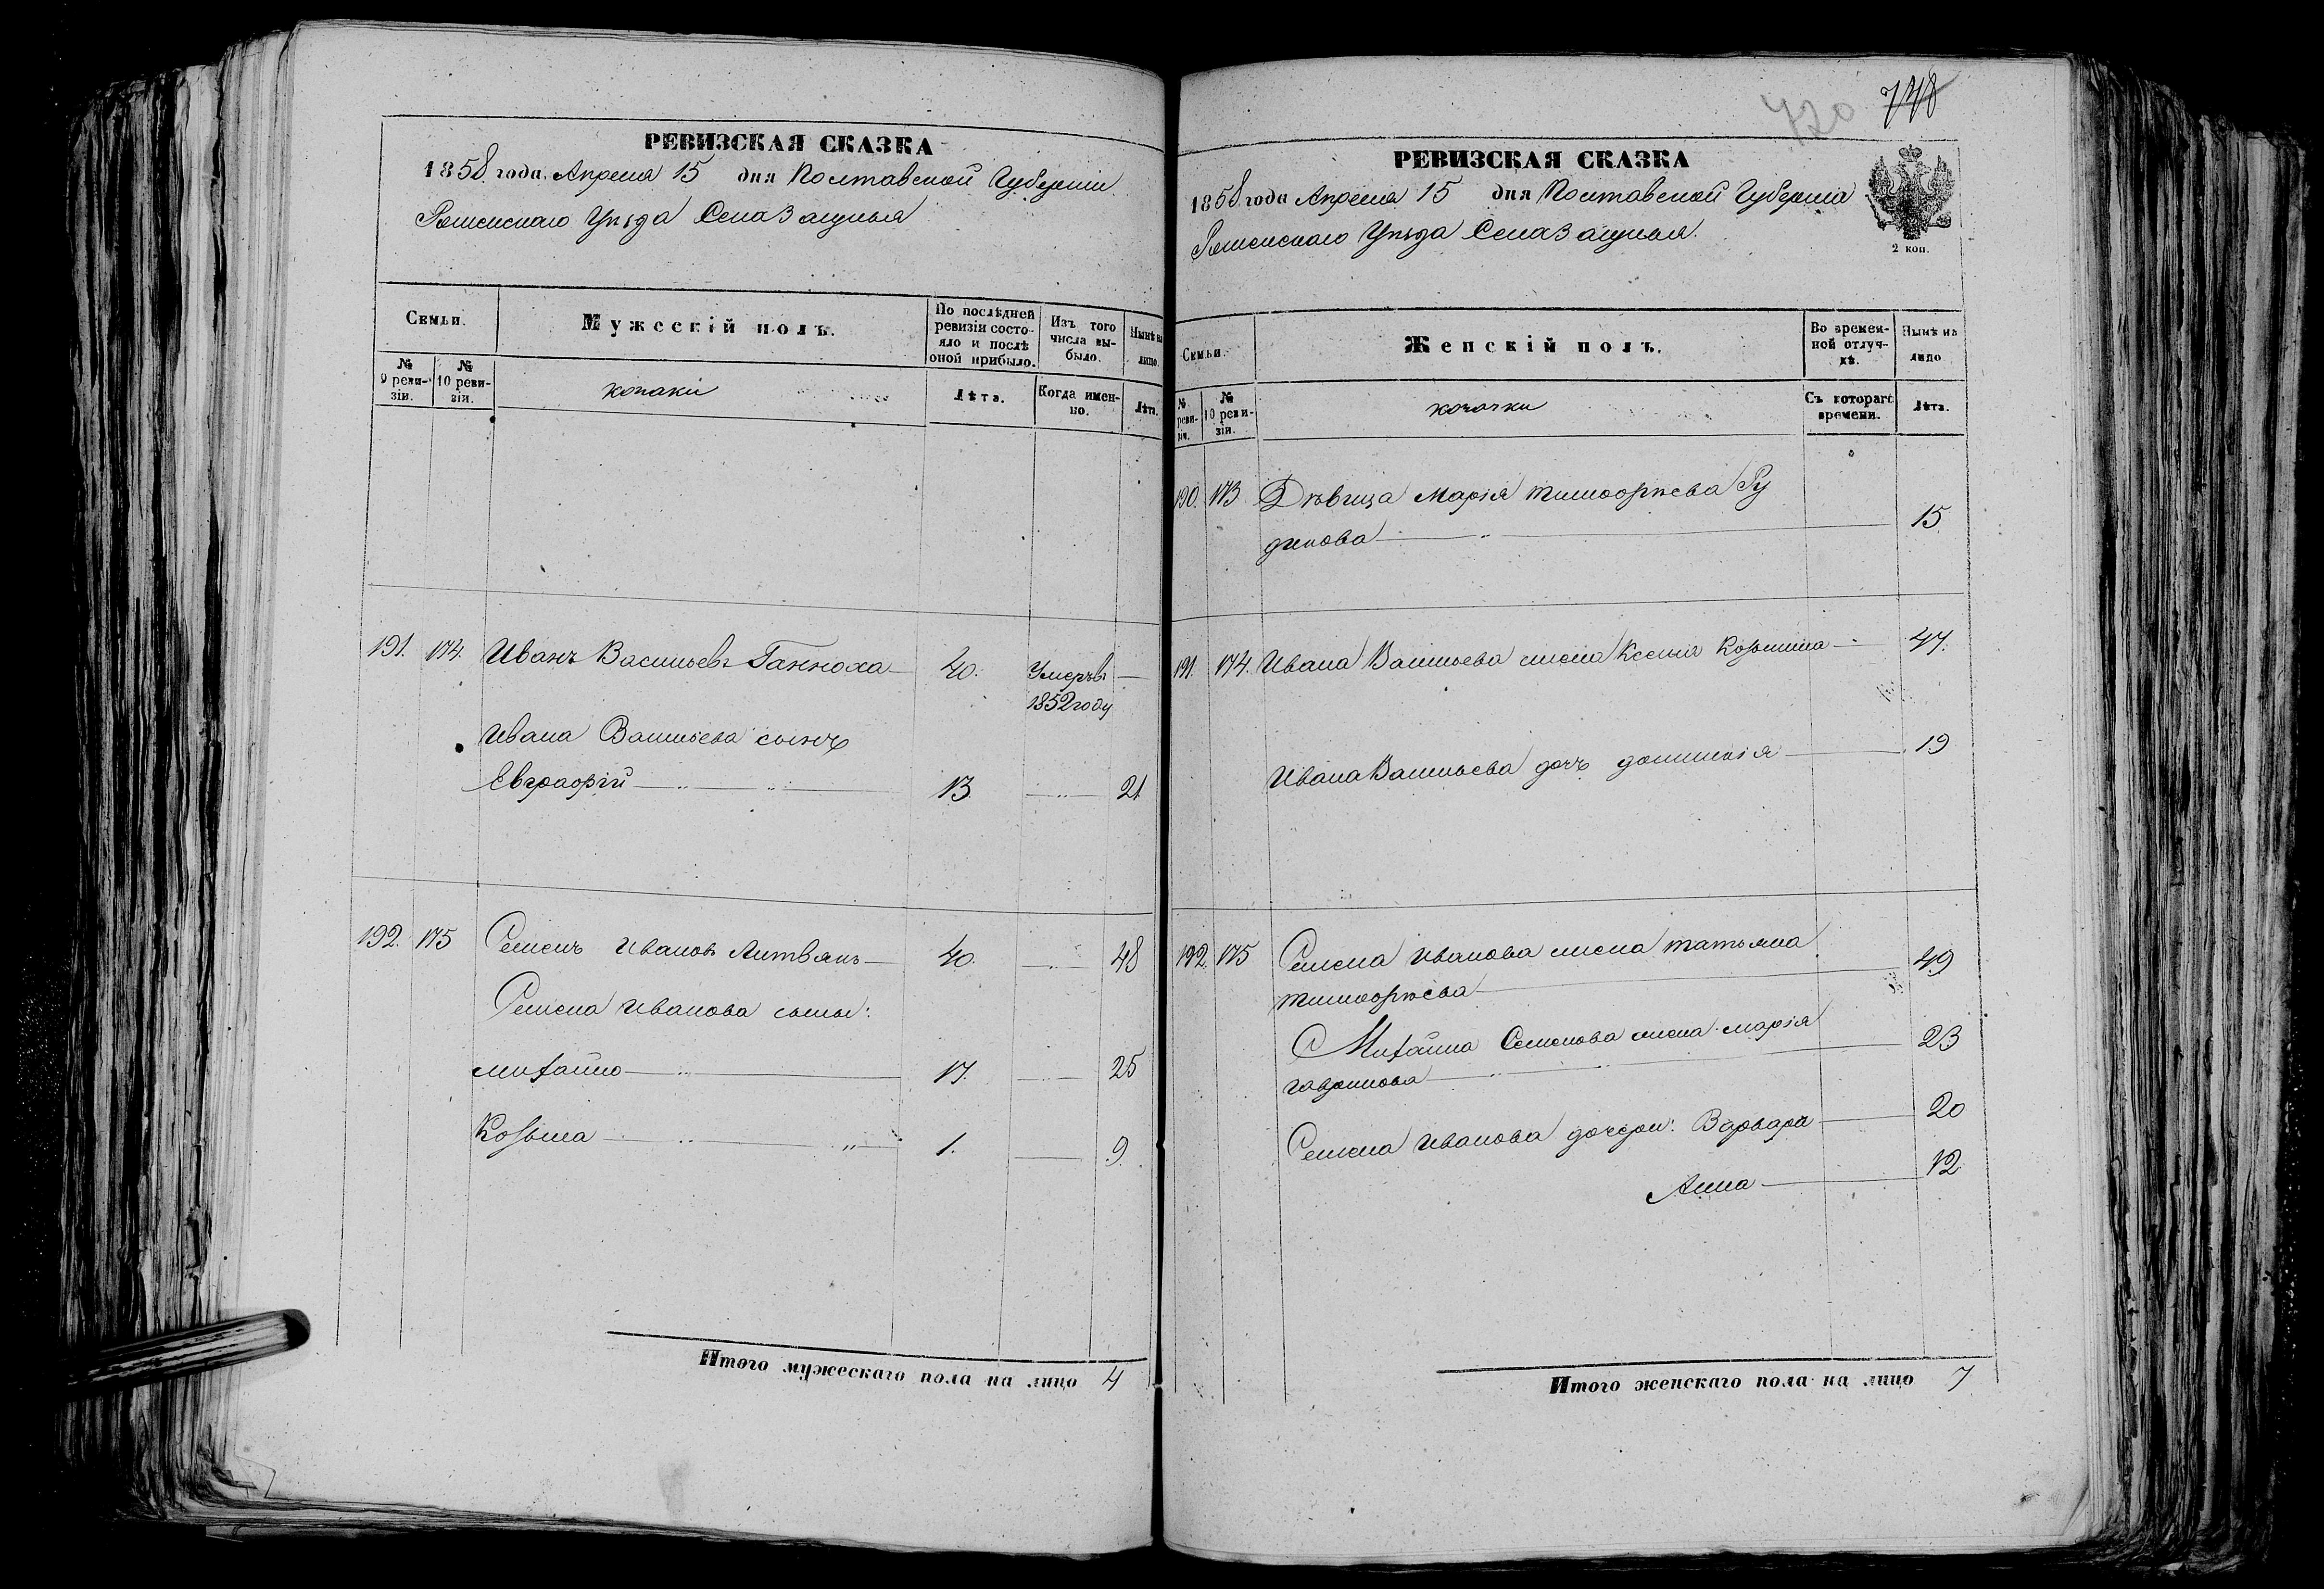 РЕВИЗСКАЯ СКАЗКА
1858 года Апреля 15 дня Полтавской Губерніи
Роменскаго Уѣзда Села Загунья
Семьи.
Мужескій полъ.
По послѣдней ревизіи состояло и послѣ оной прибыло.
Изъ того числа выбыло.
Нынѣ на лицо.
№ 9 ревизіи.
№ 10 ревизіи.
козаки
Лѣта.
Когда именно.
Лѣта.
191. 174. Иванъ Васильевъ Ганноха 40. Умеръ въ
1852 году
Ивана Васильева сынъ
Евграфій 13. 21
192. 175 Семенъ Ивановъ Литвякъ 40. 48
Семена Иванова сыны:
михайло 17. 25
Козьма 1. 9.
Итого мужескаго пола на лицо 4
420 748
РЕВИЗСКАЯ СКАЗКА
1858 года Апреля 15 дня Полтавской Губерніи
Роменскаго Уѣзда Села Загунья.
2 коп.
Семьи.
Женскій полъ.
Во временной отлучкѣ.
Нынѣ на лицо
№ ревизіи.
№ 10 ревизіи.
козачки
Съ котораго времени.
Лѣта.
190. 173 Дѣвица Марія тимофѣева Ру
денкова 15.
191. 174. Ивана Васильева жена Ксенія Козьмина 47.
Ивана Васильева дочь домникія 19
192. 175 Семена Иванова жена татьяна
тимофѣева 49
Михайла Семенова жена марія
гаврилова 23
Семена Иванова дочери: Варвара 20
Анна 12
Итого женскаго пола на лицо 7